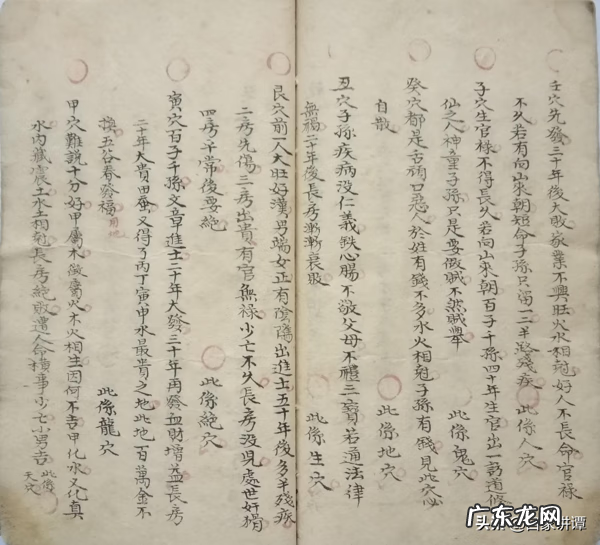 壬穴先發三十年後大敗敬業不興旺火水相尅好人不長命官祿
不久若有向山來朝短命子孫只留一二半殘疾 此條人穴
子穴生官祿不得長久若向山來朝百子千孫四十年生官出一
仙之人神童子孫只是要做賊不然賊舉 此條鬼穴
癸穴都是古禍口惡人於姓有錢不多水火相尅子孫有錢見此穴必
自散 此條地穴
丑穴子孫疾病沒仁義鉄心腸不敬父母不禮三寶若通法律
無禍二十年後長房漸漸衰敗 此條生穴
艮穴前一人大旺好漢男端女正有陰陽出進士五十年後多半殘疾
二房先傷三房出貴有官無祿少亡不久長房沒見處世奸猾
四房平常後要絶 此條絕穴
寅穴百子千孫文章進士二十年大發三十年再發血財增益長房
二十年大貴田蚕又得了丙丁寅甲水最貴之地此地百萬金不
換五谷春發福 此條龍穴
甲穴難說十分好甲屬木做屬火木火相生因何不吉甲化水又化真
水內藏震土水土相尅長房絕敗遭人命橫事少亡小男吉 此條
天穴
头条 @百家讲谭
广东龙网